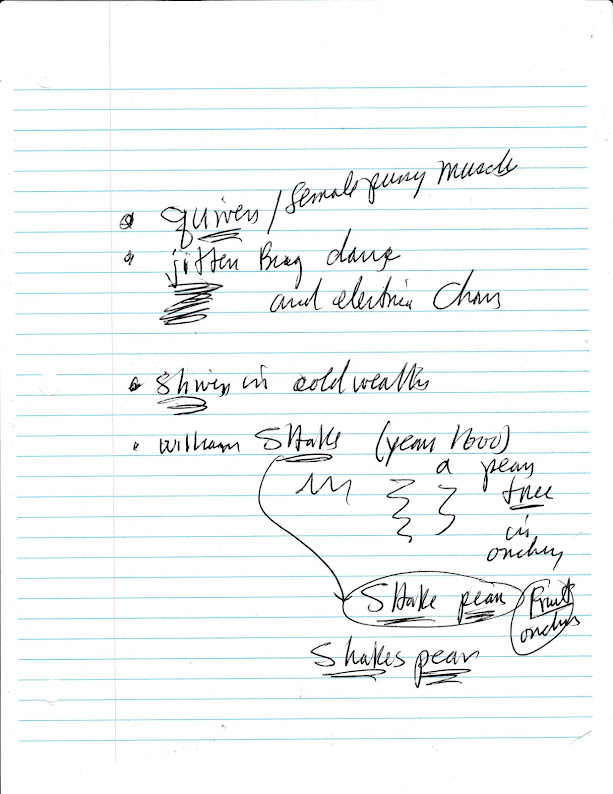 quivers / female pussy muscle
jitter Bug dance
and electric Chair
Shiver in cold weather
William Shake (year 1600)
a pear
tree
in
orchey
Shake pear
Fruit
orchar
Shakes pear